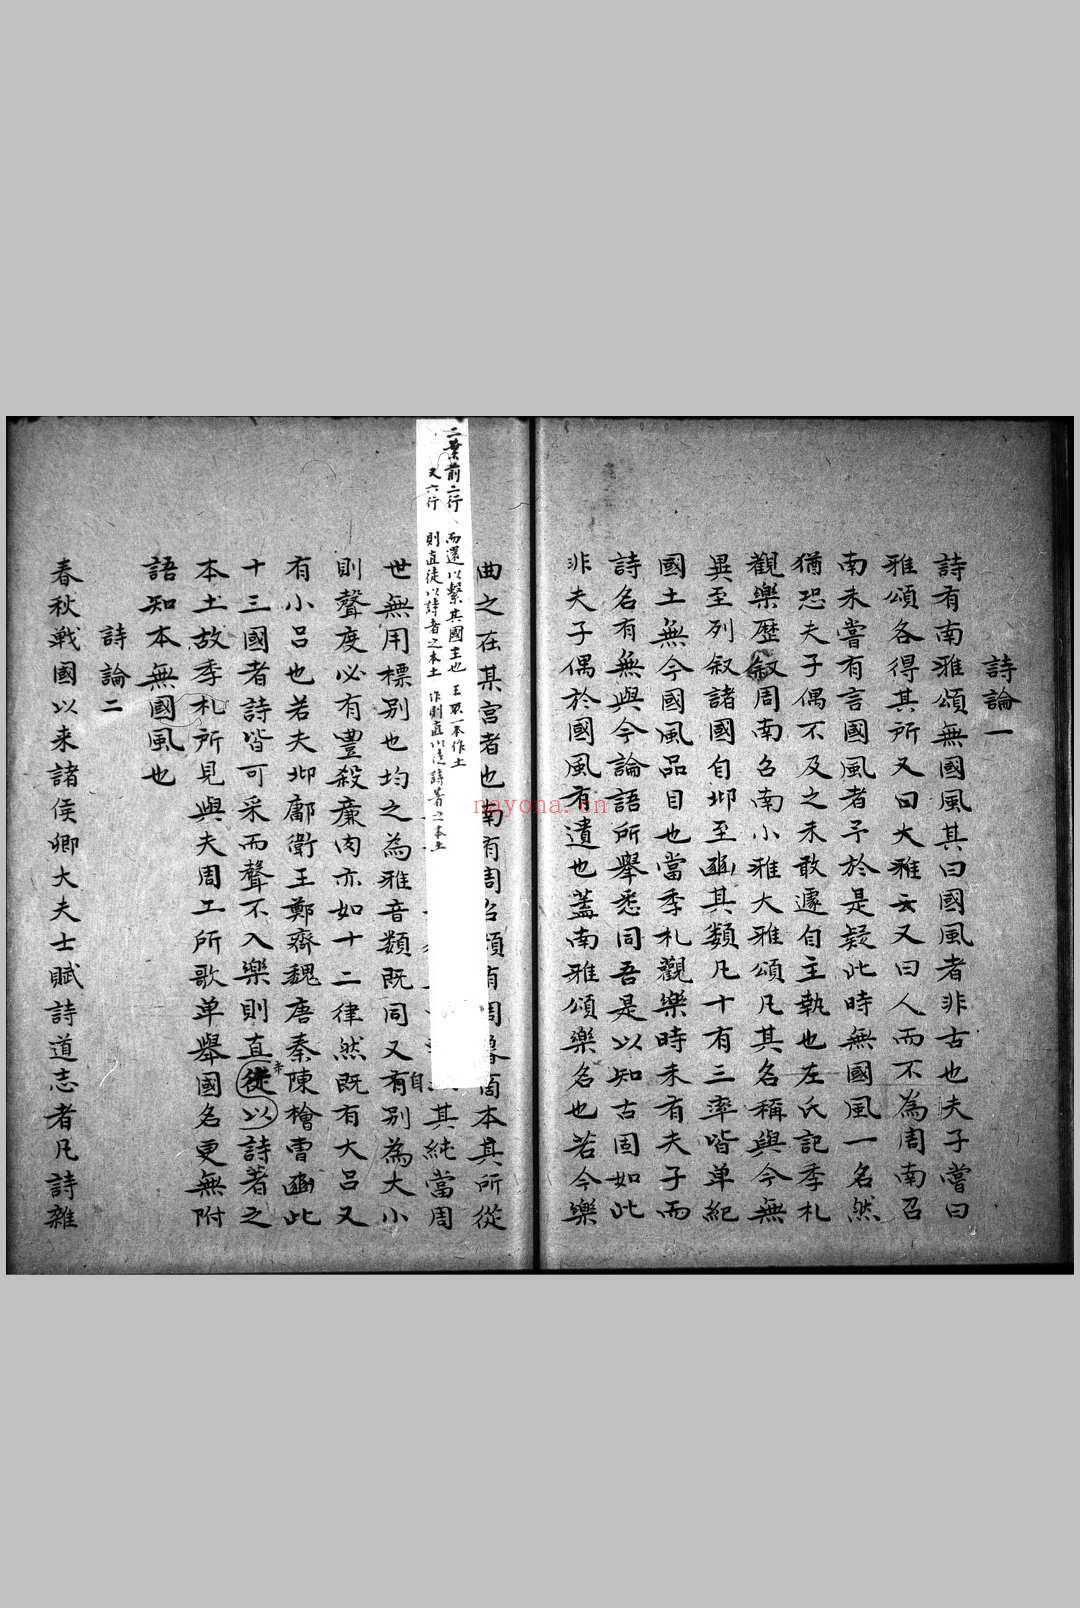 詩論一
詩有南雅頌無國風其曰國風者非古也夫子嘗曰
雅頌各得其所又曰大雅云又曰人而不為周南召
南未嘗有言國風者予於是疑此時無國風一名然
猶恐夫子偶不及之未敢遽自主執也左氏記季札
觀樂歷敘周南召南小雅大雅頌凡其名稱與今無
異至列敘諸國自邶至豳其類凡十有三率皆单紀
國土無今國風品目也當季札觀樂時未有夫子而
詩名有無與今論語所舉悉同吾是以知古固如此
非夫子偶於國風有遺也蓋南雅頌樂名也若今樂
曲之在某宮者也南有周召頌有周魯商本其所從
其純當周
世無用標別也均之為雅音類既同又自有別為大小
則聲度必有豐殺廉肉亦如十二律然既有大吕又
有小呂也若夫邶鄘衛王鄭齊魏唐秦陳檜曹豳此
十三國者詩皆可采而聲不入樂則直徒以詩著之
本土故季札所見與夫周工所歌单舉國名更無附
語知本無國風也
詩論二
春秋戰國以来諸侯卿大夫士賦詩道志者凡詩雜
二葉前二行 而還以繫其國主也 主眾一本作土
又六行 則直徒以詩者之本土 作則直以徒詩著之本土
nayona.cn